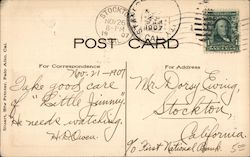 STOCKTON
NOV 26
6-PM
1907
CAL.
1907
POST CARD
For Correspondence
For Address
Nov. 21-1907
Take good care
of "Little Jimmy"
He needs watching.
H.D. Owen.
Mr Dorsy Ewing
Stockton,
California
c/o First National Bank.